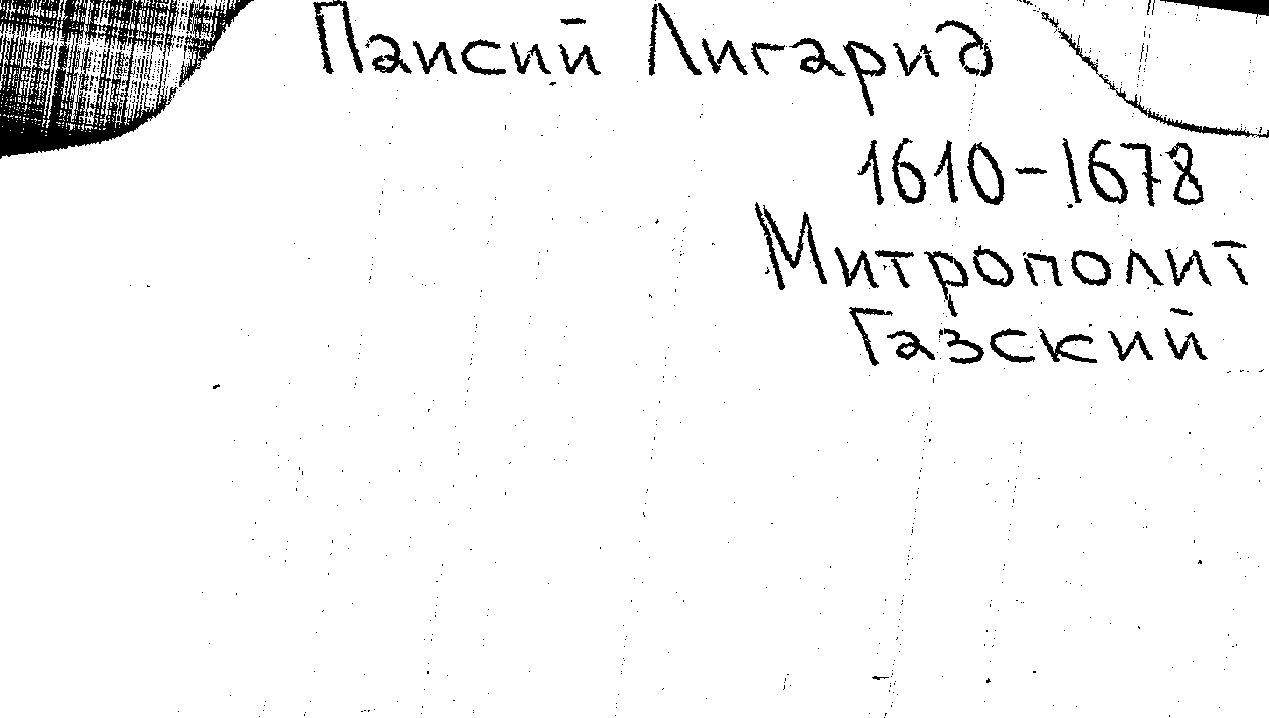 Паисий Лигарид
1610-1678
Митрополит
Газский